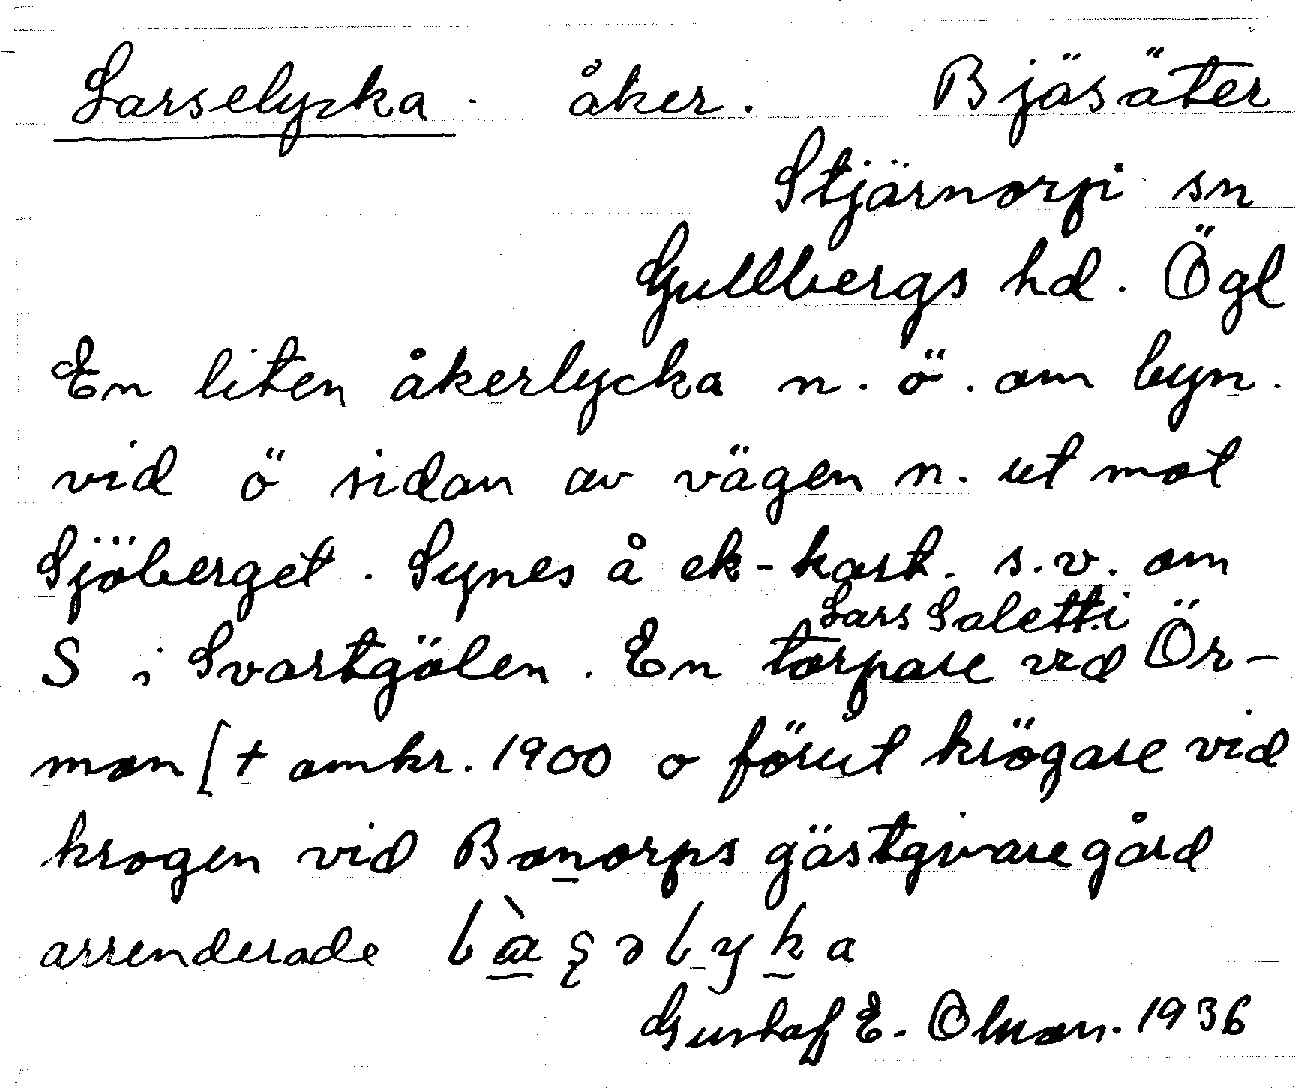 Larselycka. åker. Bjäsäter
Stjärnorps sn
Gullbergs hd. Ögl
En liten åkerlycka n. ö. om byn.
vid ö sidan av vägen n. ut mot
Sjöberget. Synes å ek-kart. s.v. om
Lars Saletti
S i Svartgölen. En torpare vid Ör-
mon [+ omkr. 1900 o förut krögare vid
krogen vid Bonorps gästgivaregård
arrenderade
Gustaf E. Olson. 1936